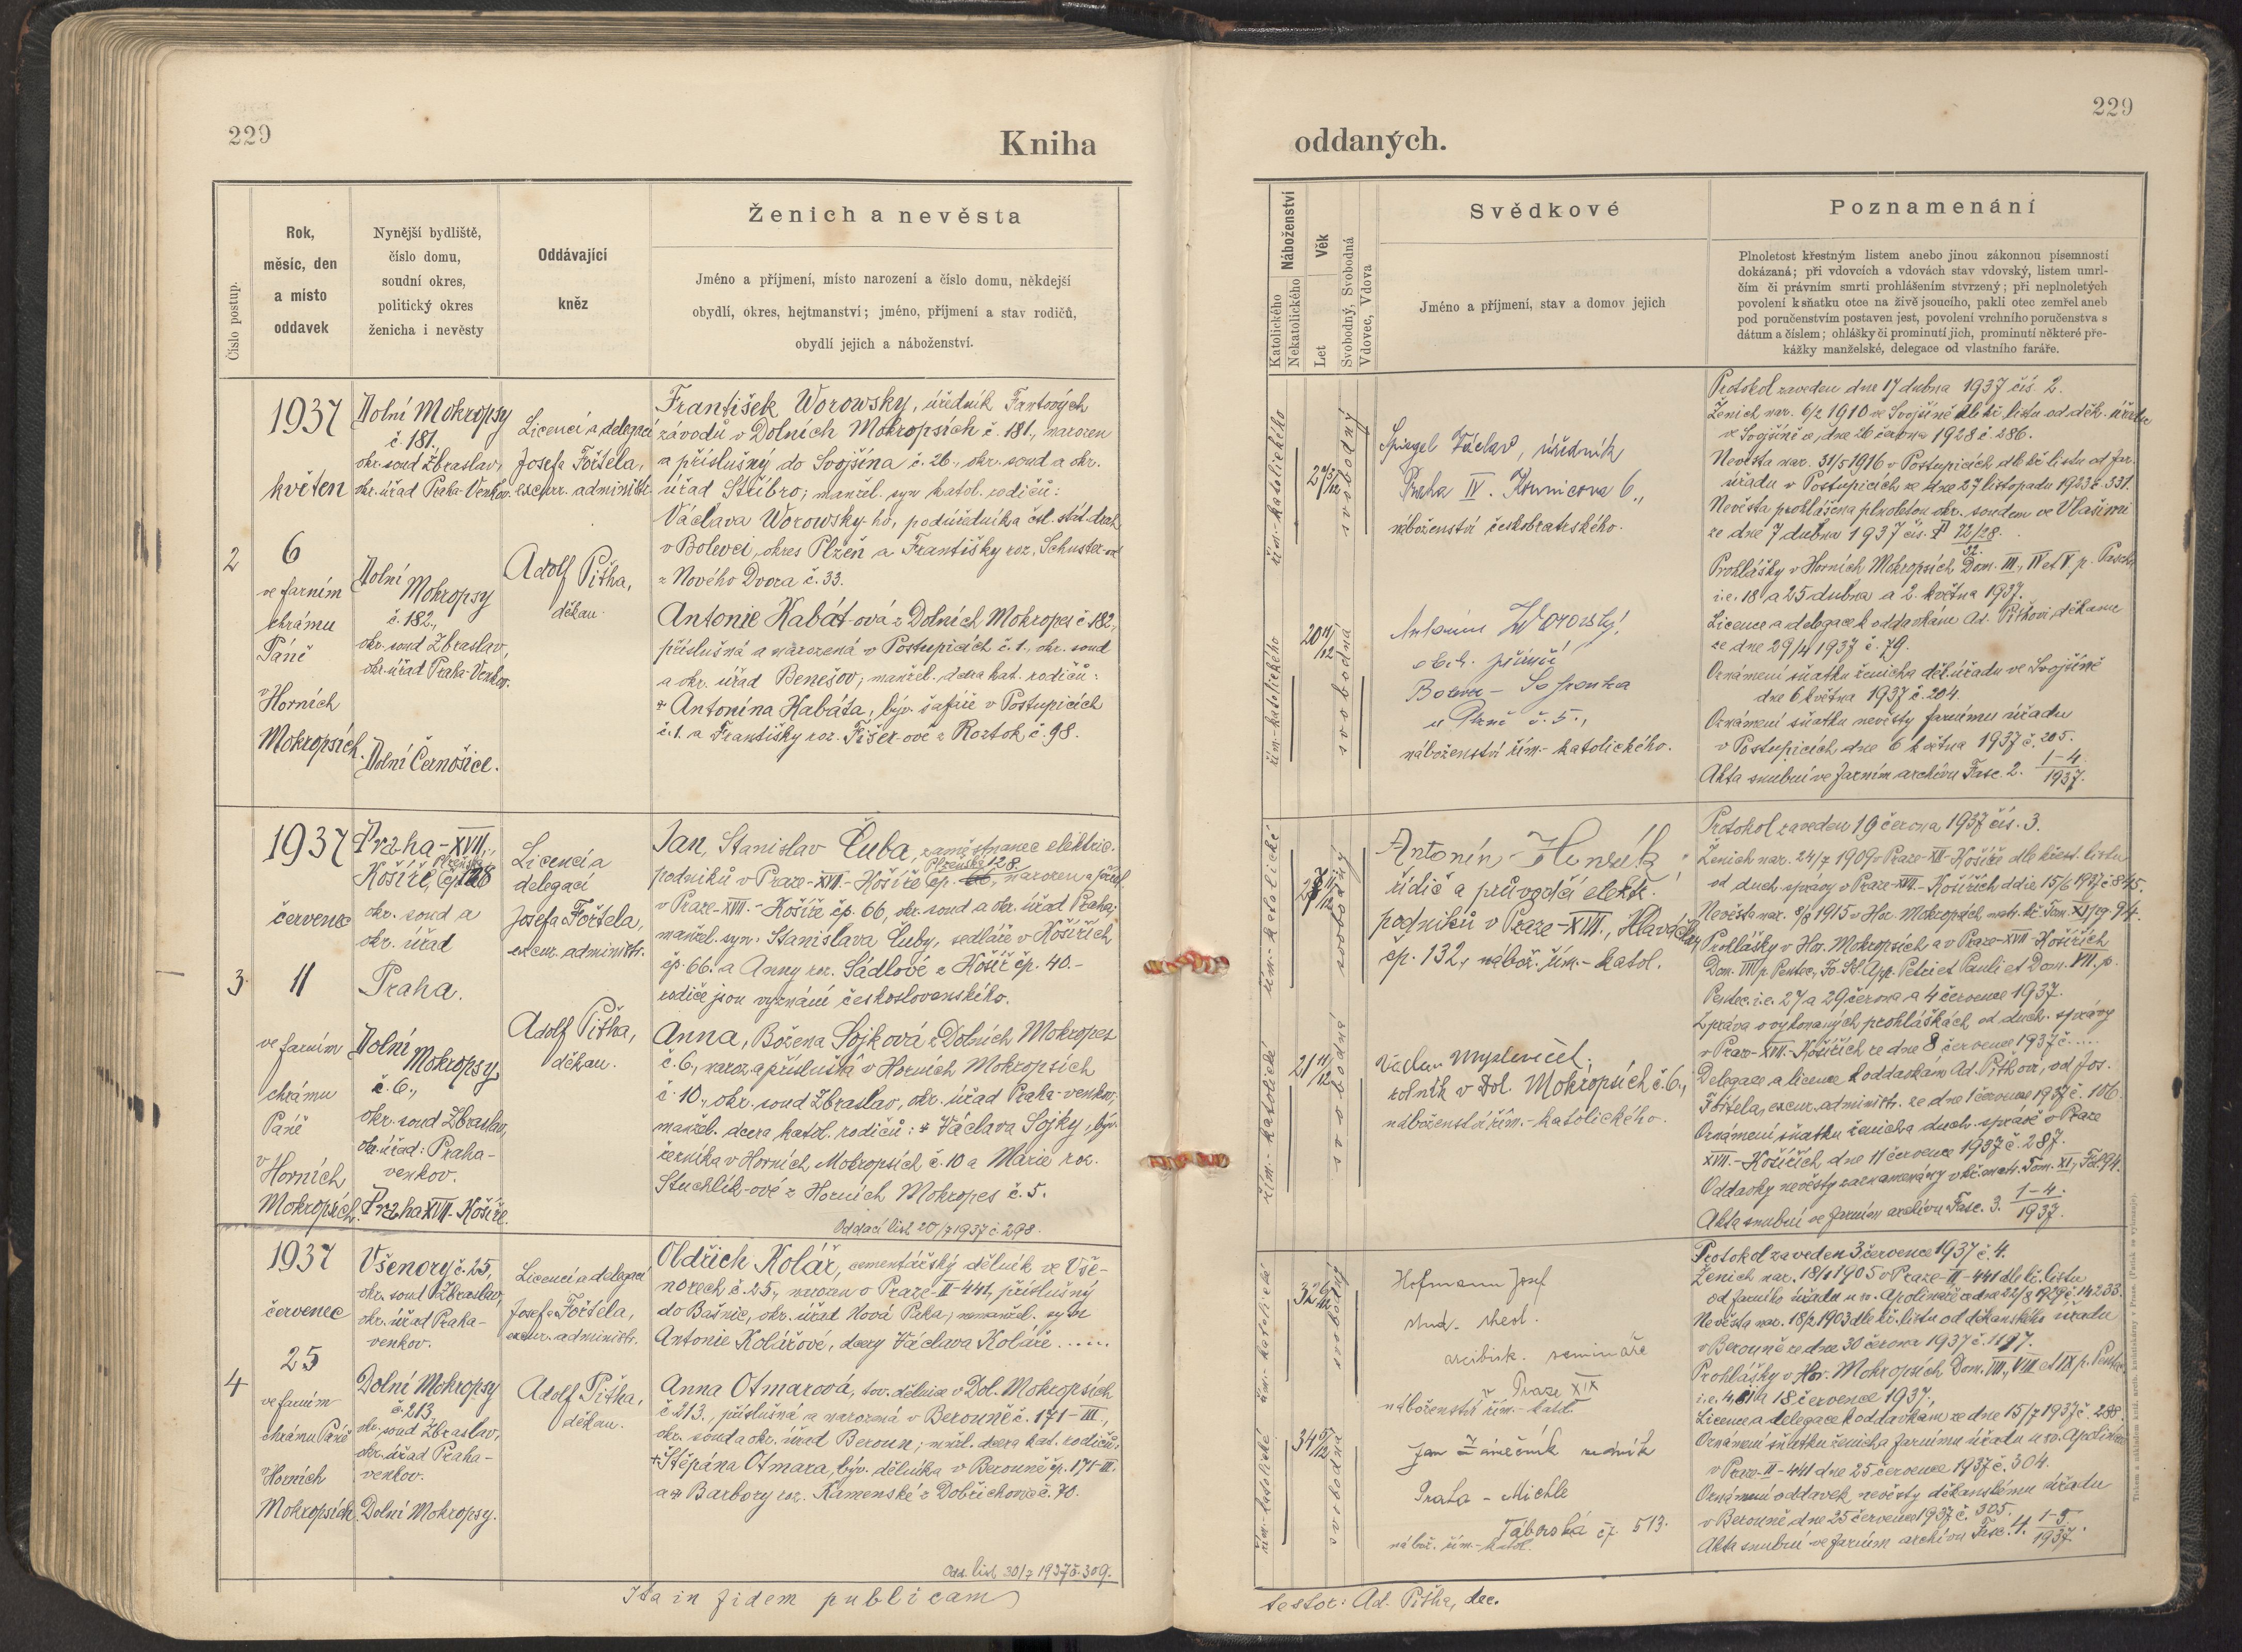 229
Kniha
Číslo postup.
Rok,
měsíc, den
a místo
oddavek
Nynější bydliště,
číslo domu,
soudní okres,
politický okres
ženicha i nevěsty
Oddávající
kněz
Ženich a nevěsta
Jméno a příjmení, místo narození a číslo domu, někdejší
obydlí, okres, hejtmanství; jméno, příjmení a stav rodičů,
obydlí jejich a náboženství.
2
1937
květen
6
ve farním
chrámu
Páně
v
Horních
Mokropsích.
Dolní Mokropsy
č. 181.
okr. soud Zbraslav,
okr. úřad Praha-Venkov.
Dolní
Mokropsy
č. 182.,
okr. soud Zbraslav,
okr. úřad Praha-Venkov.
Dolní Černošice.
Licencí a delegací
Josefa Fořtela,
excurr. administr.
Adolf Piťha,
děkan.
František Worowsky, úředník Fantových
závodů v Dolních Mokropsích č. 181., narozen
a příslušný do Svojšína č. 26., okr. soud a okr.
úřad Stříbro; manžel. syn katol. rodičů:
Václava Worowsky-ho, podúředníka čsl. stát. drah
v Bolevci, okres Plzeň a Františky roz. Schuster-ové
z Nového Dvora č. 33.
Antonie Kabát-ová z Dolních Mokropes č. 182.,
příslušná a narozená v Postupicích č. 1., okr. soud
a okr. úřad Benešov; manžel. dcera kat. rodičů:
+ Antonína Kabáta, býv. šafáře v Postupicích
č. 1. a Františky roz. Fišer-ové z Roztok č. 98.
3.
1937
červenec
11
ve farním
chrámu
Páně
v
Horních
Mokropsích.
Praha-XVII.,
Plzeňská
Košíře, čp. 128
okr. soud a
okr. úřad
Praha.
Dolní
Mokropsy,
č. 6.,
okr. soud Zbraslav,
okr. úřad: Praha-
venkov.
Praha XVII-Košíře.
Licencí a
delegací
Josefa Fořtela,
excur. administr.
Adolf Piťha,
děkan.
Jan, Stanislav Čuba, zaměstnanec elektric.
Plzeňská 128
podniků v Praze-XVII.-Košíře čp. 66, narozen a přísl.
v Praze-XVII.-Košíře čp. 66, okr. soud a okr. úřad Praha;
manžel. syn: Stanislava Čuby, sedláře v Košířích
čp. 66. a Anny roz. Sádlové z Košíř čp. 40.-
rodiče jsou vyznání československého.
Anna, Božena Sojková z Dolních Mokropes
č. 6., naroz. a příslušná v Horních Mokropsích
č. 10., okr. soud Zbraslav, okr. úřad Praha-venkov;
manžel. dcera katol. rodičů: + Václava Sojky, býv.
řezníka v Horních Mokropsích č. 10 a Marie roz.
Stuchlík-ové z Horních Mokropes č. 5.
Oddací list 20/7 1937 č. 298.
4
1937
červenec
25
ve farním
chrámu Páně
v
Horních
Mokropsích.
Všenory č. 25,
okr. soud Zbraslav,
okr. úřad Praha-
venkov.
Dolní Mokropsy
č. 213.,
okr. soud Zbraslav,
okr. úřad Praha-
venkov.
Dolní Mokropsy.
Licencí a delegací
Josefa Fořtela,
excur. administr.
Adolf Piťha,
děkan.
Oldřich Kolář, cementářský dělník ve Vše-
norech č. 25., narozen v Praze-II-441, příslušný
do Bašnic, okr. úřad Nová Paka; nemanžel. syn
Antonie Kolářové, dcery Václava Koláře .....
Anna Otmarová, tov. dělnice v Dol. Mokropsích
č. 213., příslušná a narozená v Berouně č. 171-III,
okr. soud a okr. úřad Beroun; manžel. dcera kat. rodičů:
+ Štěpána Otmara, býv. dělníka v Berouně čp. 171-III.
a + Barbory roz. Kamenské z Dobřichovic č. 70.
Odd. list 30/7 1937 č. 309.
Ita in fidem publicam
229
oddaných.
Náboženství
Katolického
Nekatolického
Věk
Let
Svobodný, Svobodná
Vdovec, Vdova
Svědkové
Jméno a příjmení, stav a domov jejich
Poznamenání
Plnoletost křestným listem anebo jinou zákonnou písemností
dokázaná; při vdovcích a vdovách stav vdovský, listem umrl-
čím či právním smrti prohlášením stvrzený; při neplnoletých
povolení k sňatku otce na živě jsoucího, pakli otec zemřel aneb
pod poručenstvím postaven jest, povolení vrchního poručenstva s
dátum a číslem; ohlášky či prominutí jich, prominutí některé pře-
kážky manželské, delegace od vlastního faráře.
řím.-katolického
27 3/12
svobodný
řím.-katolického
20 11/12
svobodná
Spiegel Václav, úředník
Praha IV. Kounicova 6.,
náboženství českobratrského.
Antonín Worovský,
obch. příručí
Bolevec -
u Plzně č. 5.,
náboženství řím.-katolického.
Protokol zaveden dne 17 dubna 1937 čís. 2.
Ženich nar. 6/2 1910 ve Svojšíně dle kř. listu od děk. úřadu
ve Svojšíně ze dne 26 června 1928 č. 286.
Nevěsta nar. 31/5 1916 v Postupicích dle kř. listu od far.
úřadu v Postupicích ze dne 27 listopadu 1923 č. 331.
Nevěsta prohlášena plnoletou okr. soudem ve Vlašimi
ze dne 7 dubna 1937 čís. P 72/28.
32.
Prohlášky v Horních Mokropsích Dom. III., IV et V. p. Pascha
i.e. 18 a 25 dubna a 2. května 1937.
Licence a delegace k oddavkám Ad. Piťhovi, děkanu
ze dne 29/4 1937 č. 79.
Oznámení sňatku ženicha děk. úřadu ve Svojšíně
dne 6 května 1937 č. 204.
Oznámení sňatku nevěsty farnímu úřadu
v Postupicích, dne 6 května 1937 č. 205.
Akta snubní ve farním archivu Fasc. 2. 1-4/1937.
řím.-katolické
27 11/12
svobodný
řím.-katolické
21 11/12
svobodná
Antonín
řidič a průvodčí elektr.
podniků v Praze-XVII., Hlaváčkova
čp. 132, nábož. řím.-katol.
Václav Mysliveček,
rolník v Dol. Mokropsích č. 6.,
náboženství řím.-katolického.
Protokol zaveden 19 června 1937 čís. 3.
Ženich nar. 24/7 1909 v Praze-XVII-Košíře dle křest. listu
od duch. správy v Praze-XVII.-Košířích ddie 15/6 1937 č. 845.
Nevěsta nar. 8/8 1915 v Hor. Mokropsích, matr. kř. Tom. XI pg. 94.
Prohlášky v Hor. Mokropsích a v Praze-XVII-Košířích
Dom. VI p. Pentec., Fo. SS. App. Petri et Pauli et Dom. VII. p.
Pentec. i.e. 27 a 29 června a 4 července 1937.
Zpráva o vykonaných prohláškách od duch. správy
v Praze-XVII.-Košířích ze dne 8 července 1937 č.....
Delegace a licence k oddavkám Ad. Piťhovi, od Jos.
Fořtela, excur. administr. ze dne 1 července 1937 č. 106.
Oznámení sňatku ženicha duch. správě v Praze
XVII.-Košířích, dne 11 července 1937 č. 287.
Oddavky nevěsty zaznamenány v kř. matr. Tom. XI, Fol. 94.
Akta snubní ve farním archivu Fasc. 3. 1-4/1937.
řím.-katolické
32 6/12
svobodný
řím.-katolické
34 5/12
svobodná
Hofmann Josef
stud. theol.
arcibisk. semináře
v Praze XIX
náboženství řím.-katol.
Jan Zámečník
Praha - Michle
Táborská čp. 513.
nábož. řím.-katol.
Protokol zaveden 3. července 1937 č. 4.
Ženich nar. 18/1 1905 v Praze-II-441 dle kř. listu
od farního úřadu u sv. Apolináře ze dne 22/8 1929 č. 14233.
Nevěsta nar. 18/2 1903 dle kř. listu od děkanského úřadu
v Berouně ze dne 30 června 1937 č. 1197.
Prohlášky v Hor. Mokropsích Dom. VII., VIII et IX p. Pentec.
i.e. 4, 11 a 18 července 1937.,
Licence a delegace k oddavkám ze dne 15/7 1937 č. 288.
Oznámení sňatku ženicha farnímu úřadu u sv. Apolináře
v Praze-II-441 dne 25 července 1937 č. 304.
Oznámení oddavek nevěsty děkanskému úřadu
v Berouně dne 25 července 1937 č. 305.
Akta snubní ve farním archivu Fasc. 4. 1-5/1937.
testor: Ad. Piťha, dec.